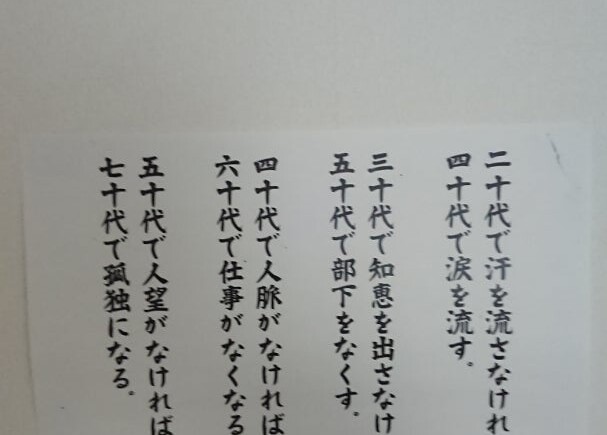 二十代で汗を流さなけれ
四十代で涙を流す。
三十代で知恵を出さなけ
五十代で部下をなくす。
四十代で人脈がなければ
六十代で仕事がなくなる
五十代で人望がなければ
七十代で孤独になる。